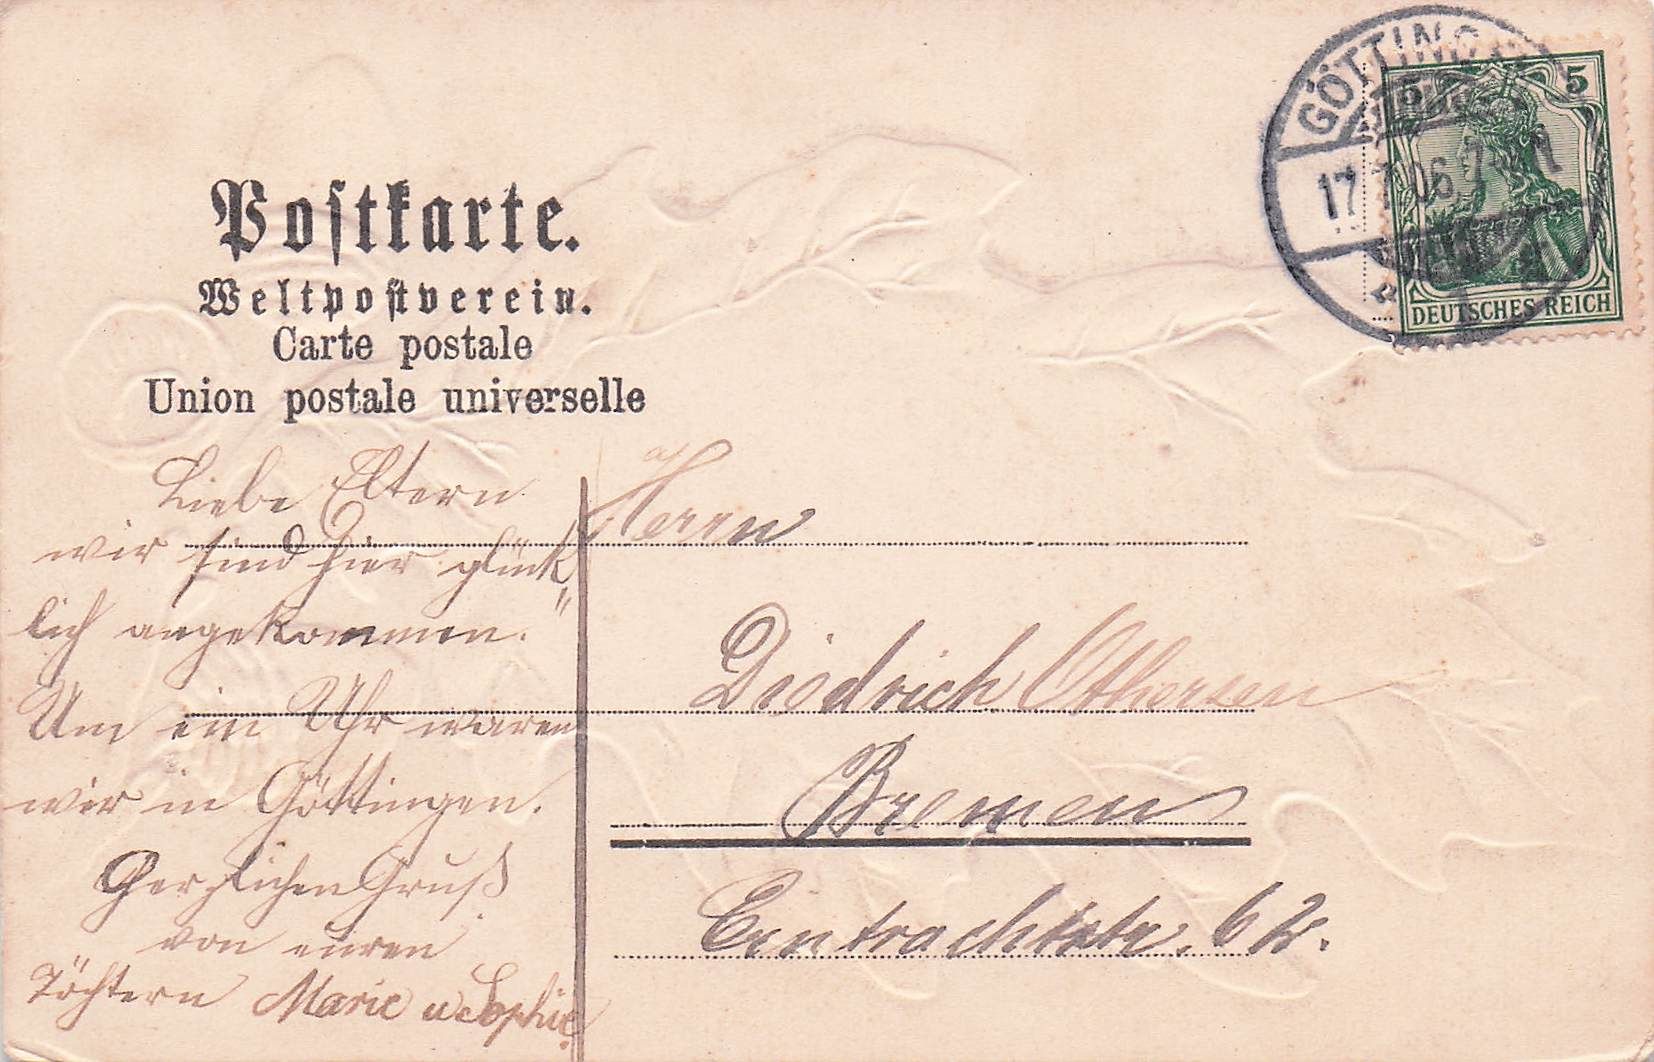 GÖTTING
17. 06. 7
5 5
DEUTSCHES REICH
Postkarte.
Weltpostverein.
Carte postale
Union postale universelle
Liebe Eltern
wir sind hier glück"
lich angekommen.
Um ein Uhr waren
wir in Göttingen.
Herzlichen Gruß
von euren
Töchtern Marie u Sophie.
Herrn
Diedrich Othersen
Bremen
Eintrachtstr. 62